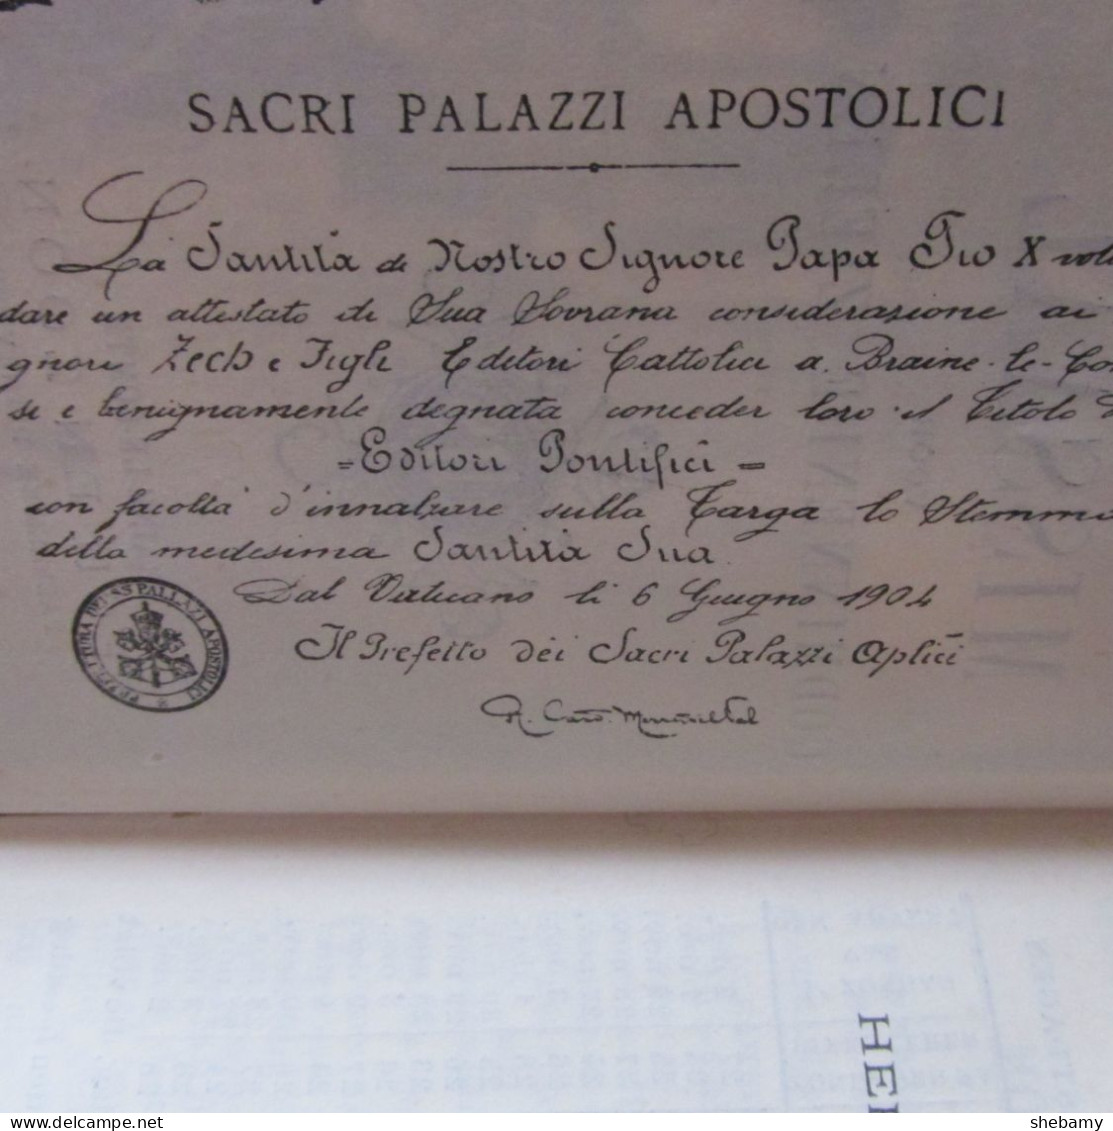 SACRI PALAZZI APOSTOLICI
La Santità di Nostro Signore Papa Pio X vol
dare un attestato di Sua Sovrana considerazione ai
gnori Zech e Figli Editori Cattolici a Braine-le-Co
si è benignamente degnata conceder loro il Titolo d
=Editori Pontifici=
con facoltà d'innalzare sulla Targa lo Stemma
della medesima Santità Sua
Dal Vaticano li 6 Giugno 1904
Il Prefetto dei Sacri Palazzi Aplici
PREFETTURA DEI SS PALLAZI APOSTOLICI
HE
shebamy